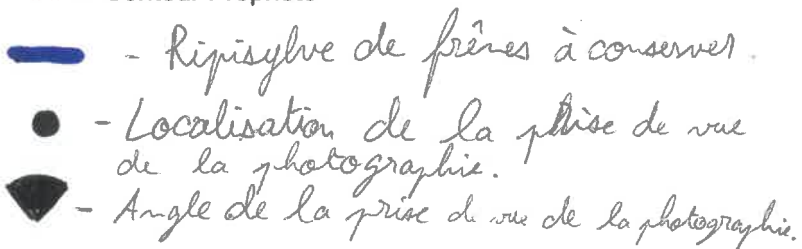 - Ripisylve de frênes à conserver.
- Localisation de la prise de vue
de la photographie.
- Angle de la prise de vue de la photographie.